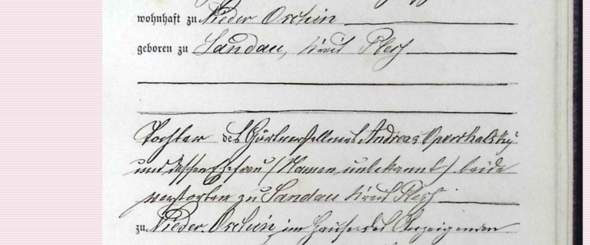 wohnhaft zu Nieder Orchin
geboren zu Sandau, Kreis Pleß
Tochter des Gärtnerstellen Andreas
und dessen Ehefrau (Namen unbekannt) beide
verstorben zu Sandau Kreis Pleß
zu Nieder Orchin, im Hause des Anzeigenden